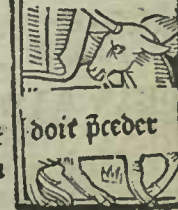 doit p̄ceder